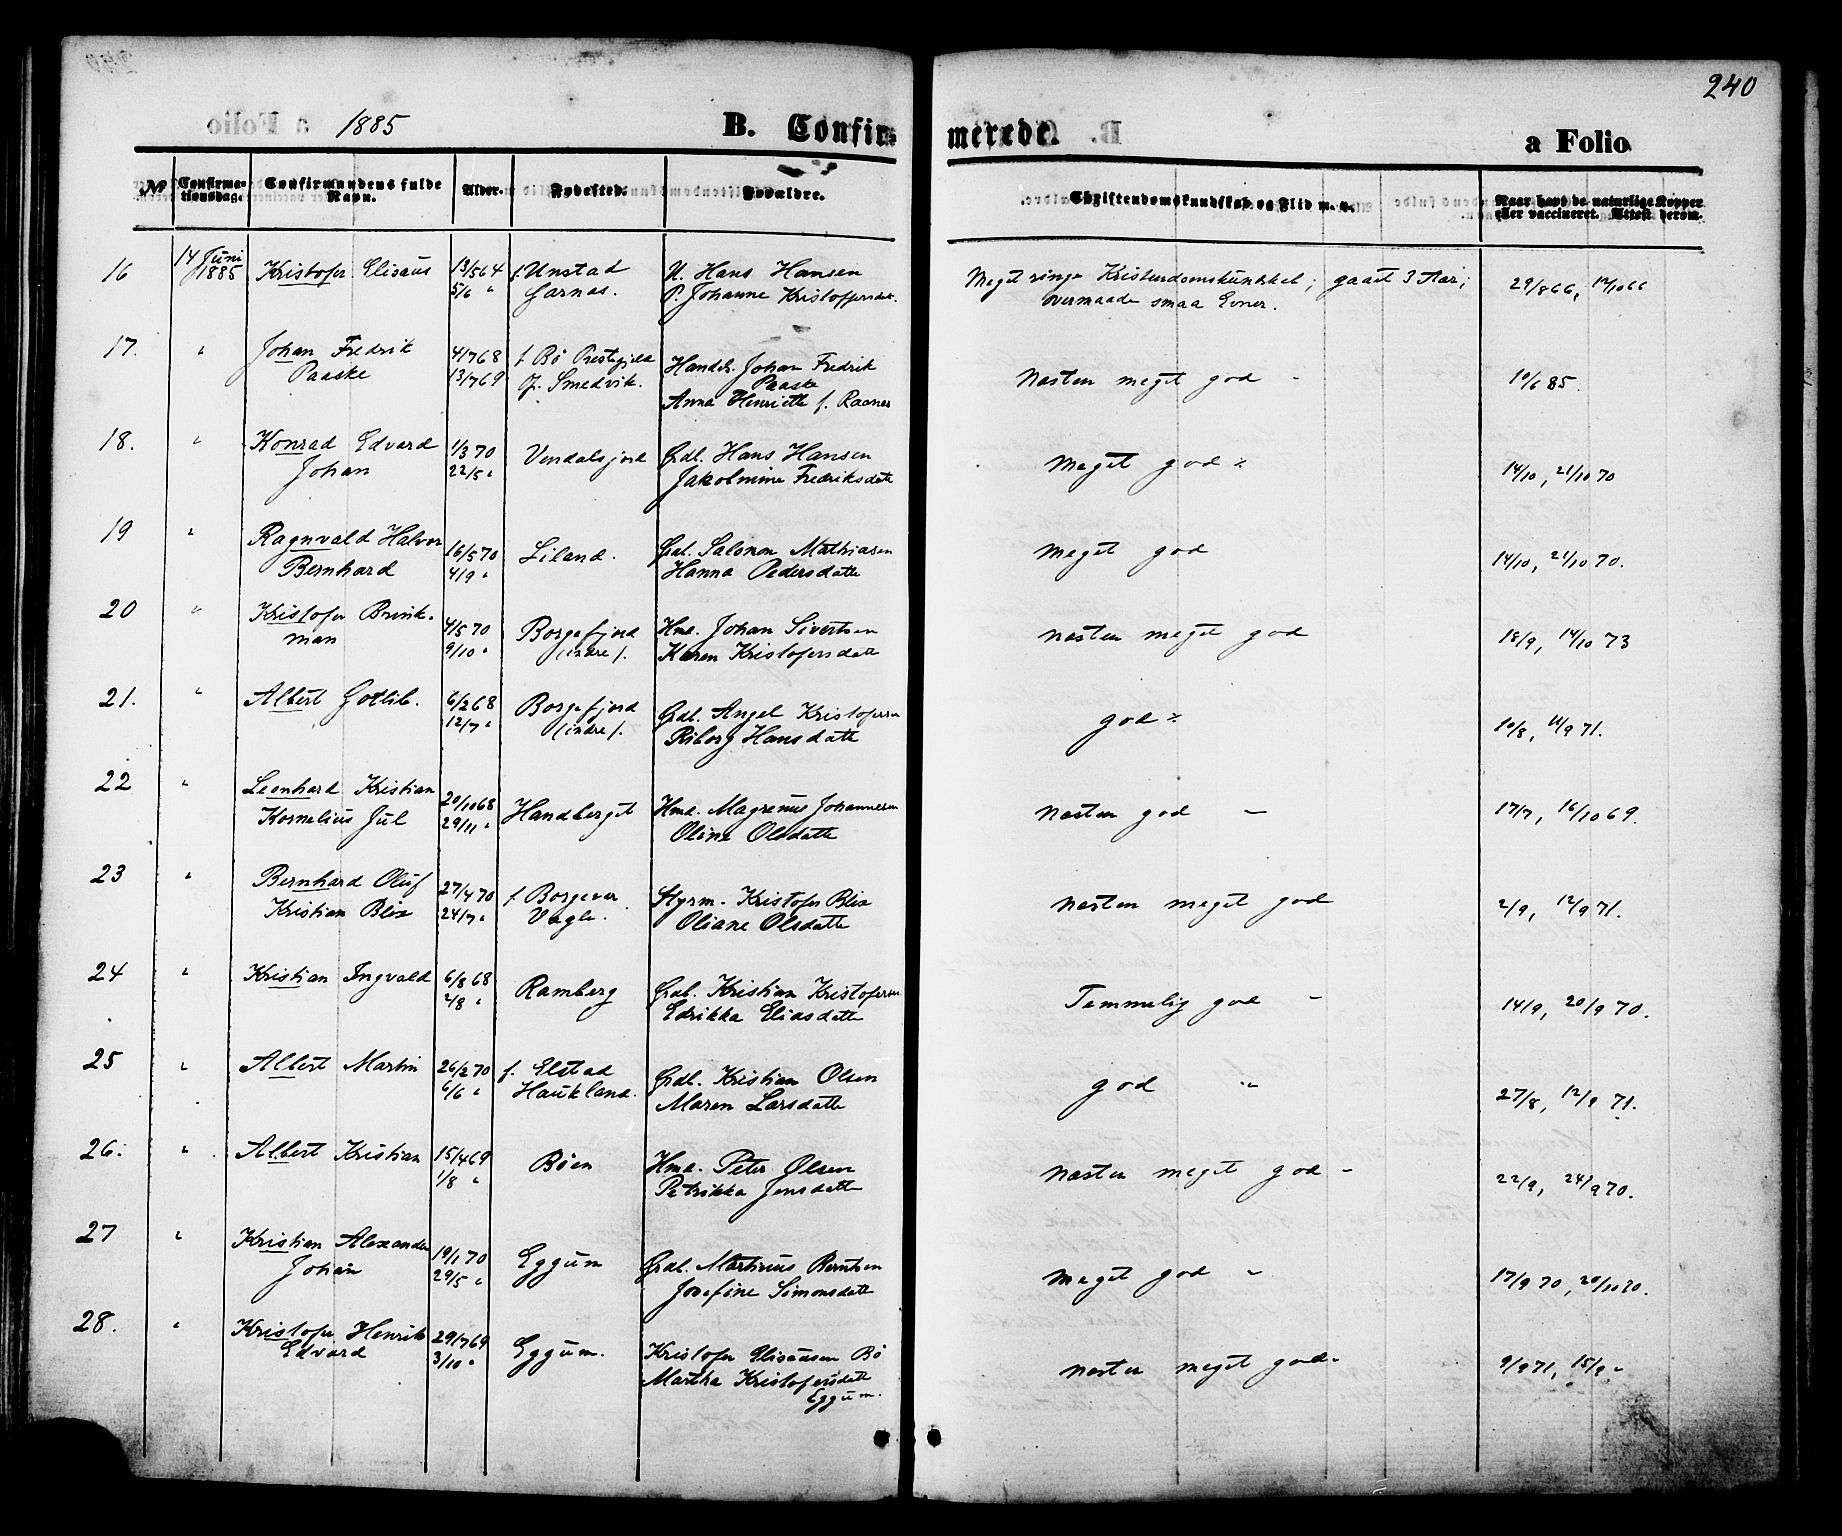 240
1885
B. Confir-
merede.
a Folio
No
Confirma-
tionsdag.
Confirmandens fulde
Navn.
Alder.
Fødested.
Forældre.
Christendomskundskab og Flid m. v.
Naar havt de naturlige Kopper
eller vaccineret. Attest derom.
16 14 Juni 1885 Kristofer Elisæus 13/5 64 f. Unstad N. Hans Hansen Meget ringe Kristendomskundskab; gaaet 3 Aar; 29/8 66,
5/6 " P. Johanne Kristoffersdat. overmaade smaa Evner.
17. " Johan Fredrik 4/7 68 f. Bø Prestegjeld Handel. Johan Fredrik
Paaske 13/7 69 Smedvik. Paaske Næsten meget god - 10/6 85.
Anna Henriette f.
18. " Konrad Edvard 1/3 70 Vendalsjord Grdb. Hans Hansen Meget god
Johan 22/5 " Jakobmine Fredriksdatt 14/10, 21/10 70
19 " Ragnvald Halvor 16/5 70 Liland. Grdb. Salomon Mathiasen Meget god
Bernhard 4/9 " Hanna Pedersdatte 14/10, 21/10 70.
20 " Kristofer Brink- 4/5 70 Borgefjord Hmd. Johan Sivertsen Næsten meget god 18/9, 14/10 73
man 9/10 " (indre). Karen Kristofersdatte
21. " Albert Gotlib. 6/2 68 Borgefjord Grdb. Angel Kristofersen god 10/8, 11/9 71.
12/7 " (indre). Riborg Hansdatte
22 " Leonhard Kristian 20/10 68 Handberget Hmd. Magnus Johannesen Næsten god - 17/7, 16/10 69.
Kornelius Jul 29/11 " Oline Olsdatte
23 " Bernhard Oluf 27/4 70 f. Borgevær Styrm. Kristofer Blix Næsten meget god 2/9, 12/9 71.
Kristian Blix 24/7 " Vagle. Oliane Olsdatte
24 " Kristian Ingvald 6/8 68 Ramberg Grdb. Kristian Kristofersen Temmelig god - 14/9, 20/9 70.
2/8 " Edrikka Eliasdatte
25 " Albert Martin 26/2 70 f. Elstad Grdb. Kristian Olsen god " 27/8, 12/9 71.
6/6 " Haukland. Maren Larsdatte
26. " Albert Kristian 15/4 69 Bøen Hmd. Peter Olsen Næsten meget god - 22/9, 24/9 70.
1/8 " Petrikka Jensdatte
27 " Kristian Alexander 19/1 70 Eggum Grdb. Martinus Berntsen Meget god - 17/9 70, 20/10 70.
Johan 29/5 " Josefine Simonsdatte
28. " Kristofer Henrik 29/7 69 Eggum. Kristofer Elisæusen Bø Næsten meget god - 9/9 71, 15/9 "
Edvard 3/10 " Martha Kristofersdatte
Eggum.